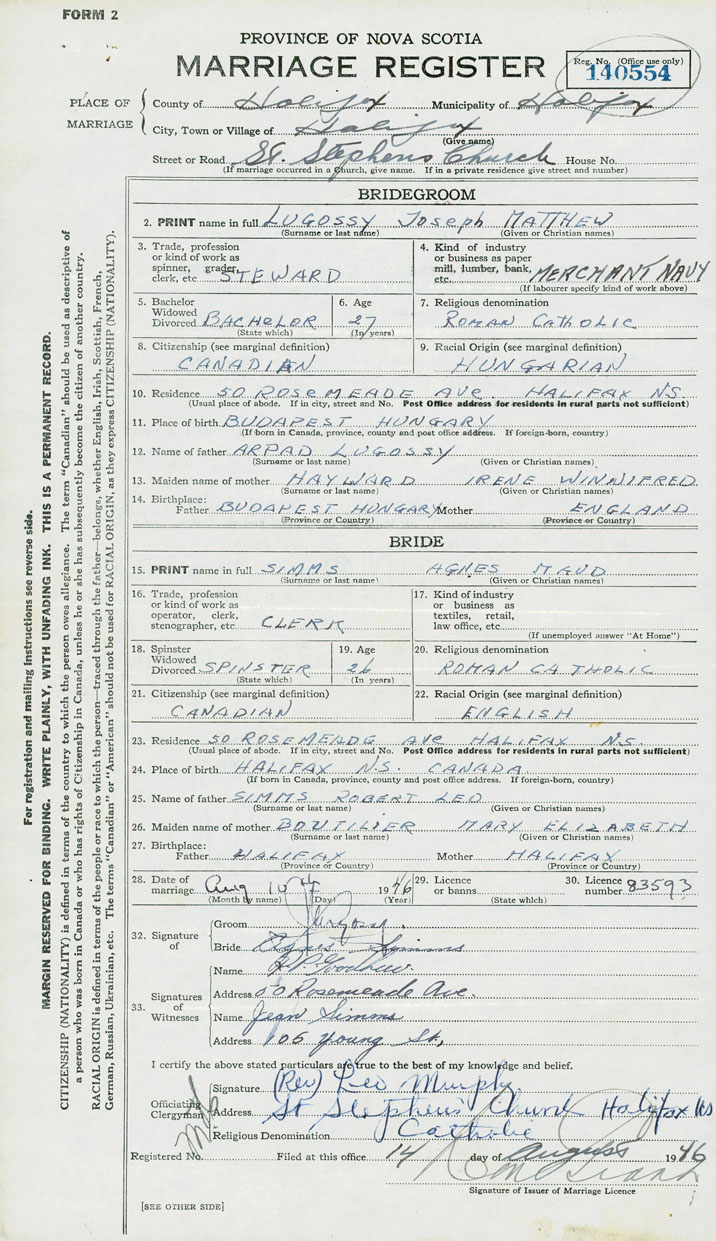 FORM 2
PROVINCE OF NOVA SCOTIA
MARRIAGE REGISTER
Reg. No. (Office use only)
140554
PLACE OF MARRIAGE
County of Halifax Municipality of Halifax
City, Town or Village of Halifax
(Give name)
Street or Road St. Stephens Church House No.
(If marriage occurred in a Church, give name. If in a private residence give street and number)
BRIDEGROOM
2. PRINT name in full LUGOSSY Joseph MATTHEW
(Surname or last name) (Given or Christian names)
3. Trade, profession or kind of work as spinner, grader, clerk, etc. STEWARD
4. Kind of industry or business as paper mill, lumber, bank, etc. MERCHANT NAVY
(If labourer specify kind of work above)
5. Bachelor Widowed Divorced BACHELOR
(State which)
6. Age 27
(In years)
7. Religious denomination
ROMAN CATHOLIC
8. Citizenship (see marginal definition)
CANADIAN
9. Racial Origin (see marginal definition)
HUNGARIAN
10. Residence 50 ROSEMEADE AVE. HALIFAX N.S.
(Usual place of abode. If in city, street and No. Post Office address for residents in rural parts not sufficient)
11. Place of birth BUDAPEST HUNGARY
(If born in Canada, province, county and post office address. If foreign-born, country)
12. Name of father ARPAD LUGOSSY
(Surname or last name) (Given or Christian names)
13. Maiden name of mother HAYWARD IRENE WINNIFRED
(Surname or last name) (Given or Christian names)
14. Birthplace:
Father BUDAPEST HUNGARY Mother ENGLAND
(Province or Country) (Province or Country)
BRIDE
15. PRINT name in full SIMMS AGNES MAUD
(Surname or last name) (Given or Christian names)
16. Trade, profession or kind of work as operator, clerk, stenographer, etc. CLERK
17. Kind of industry or business as textiles, retail, law office, etc.
(If unemployed answer "At Home")
18. Spinster Widowed Divorced SPINSTER
(State which)
19. Age 26
(In years)
20. Religious denomination
ROMAN CATHOLIC
21. Citizenship (see marginal definition)
CANADIAN
22. Racial Origin (see marginal definition)
ENGLISH
23. Residence 50 ROSEMEADE AVE HALIFAX N.S.
(Usual place of abode. If in city, street and No. Post Office address for residents in rural parts not sufficient)
24. Place of birth HALIFAX N.S. CANADA
(If born in Canada, province, county and post office address. If foreign-born, country)
25. Name of father SIMMS ROBERT LEO
(Surname or last name) (Given or Christian names)
26. Maiden name of mother BOUTILIER MARY ELIZABETH
(Surname or last name) (Given or Christian names)
27. Birthplace:
Father HALIFAX Mother HALIFAX
(Province or Country) (Province or Country)
28. Date of marriage Aug 10th 1946
(Month by name) (Day) (Year)
29. Licence or banns
(State which)
30. Licence number 83593
32. Signature of
Groom
Bride Agnes Simms
33. Signatures of Witnesses
Name
Address 50 Rosemeade Ave.
Name Jean Simms
Address 106 Young St,
I certify the above stated particulars are true to the best of my knowledge and belief.
Officiating Clergyman
Signature (Rev) Leo Murphy
Address St Stephens Church Halifax NS
Religious Denomination Catholic
Registered No. Filed at this office 14 day of August 1946
Signature of Issuer of Marriage Licence
[SEE OTHER SIDE]
For registration and mailing instructions see reverse side.
MARGIN RESERVED FOR BINDING. WRITE PLAINLY, WITH UNFADING INK. THIS IS A PERMANENT RECORD.
CITIZENSHIP (NATIONALITY) is defined in terms of the country to which the person owes allegiance. The term "Canadian" should be used as descriptive of
a person who was born in Canada or who has rights of Citizenship in Canada, unless he or she has subsequently become the citizen of another country.
RACIAL ORIGIN is defined in terms of the people or race to which the person—traced through the father—belongs, whether English, Irish, Scottish, French,
German, Russian, Ukrainian, etc. The terms "Canadian" or "American" should not be used for RACIAL ORIGIN, as they express CITIZENSHIP (NATIONALITY).